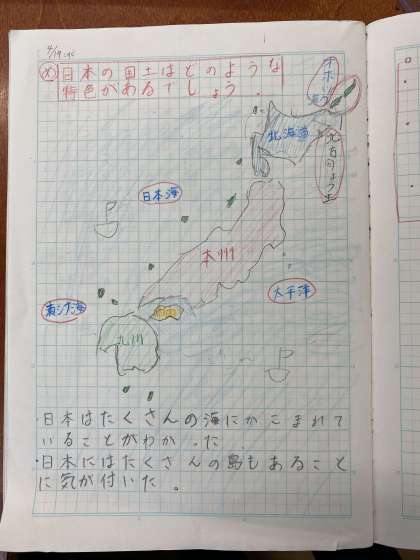 4/19
め 日本の国土はどのような
特色があるでしょう。
オホ
北海道
北方りょう土
日本海
本州
太平洋
四国
東シナ海
九州
・日本はたくさんの海にかこまれて
いることがわかった。
・日本にはたくさんの島もあること
に気が付いた。